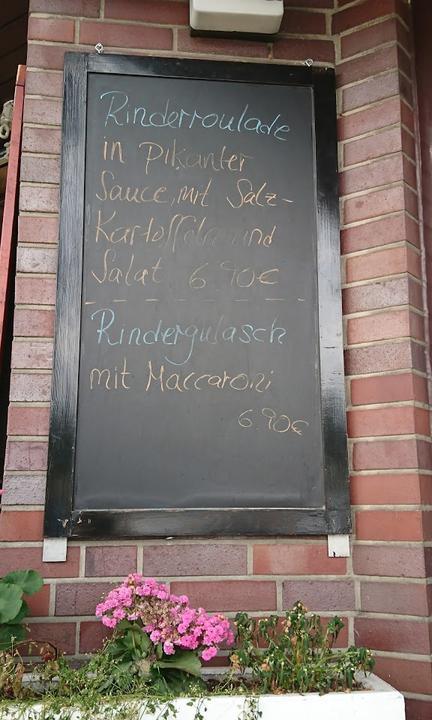 Rinderroulade
in pikanter
Sauce, mit Salz-
Kartoffeln und
Salat 6.90€
Rindergulasch
mit Maccaroni
6.90€